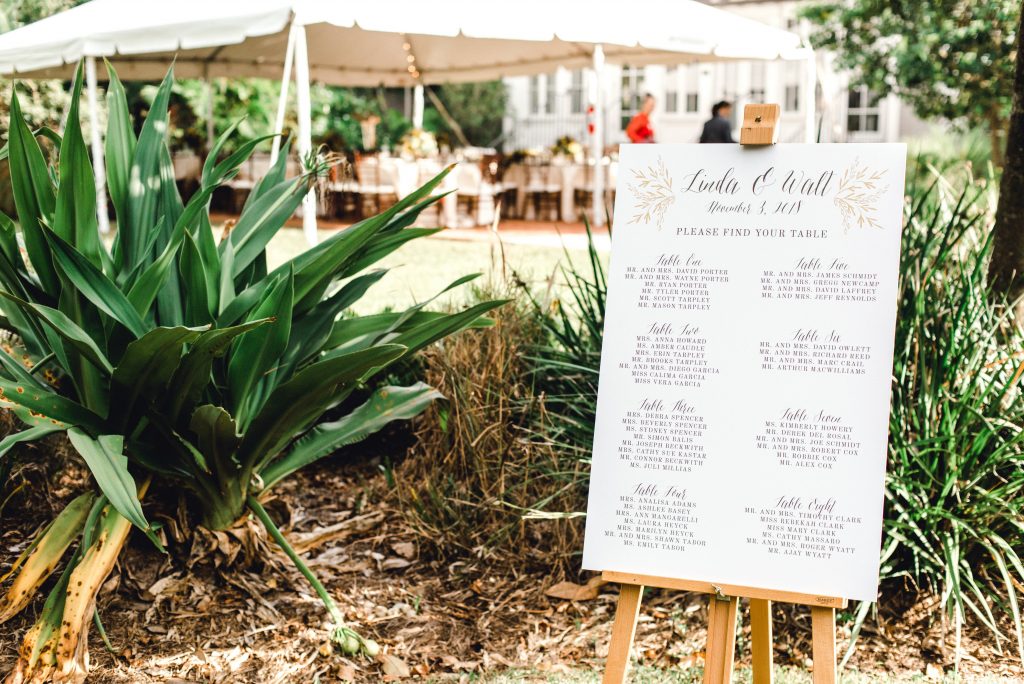 Linda & Walt
November 3, 2018
PLEASE FIND YOUR TABLE
Table One
MR. AND MRS. DAVID PORTER
MR. AND MRS. WAYNE PORTER
MR. RYAN PORTER
MR. TYLER PORTER
MR. SCOTT TARPLEY
MR. MASON TARPLEY
Table Two
MRS. ANNA HOWARD
MS. AMBER CAUDLE
MRS. ERIN TARPLEY
MR. BROOKS TARPLEY
MR. AND MRS. DIEGO GARCIA
MISS CALIMA GARCIA
MISS VERA GARCIA
Table Three
MRS. DEBRA SPENCER
MRS. BEVERLY SPENCER
MS. SYDNEY SPENCER
MR. SIMON BALIS
MR. JOSEPH BECKWITH
MRS. CATHY SUE KASTAR
MR. CONNOR BECKWITH
MS. JULI MILLIAS
Table Four
MRS. ANALISA ADAMS
MS. ASHLEE BASEY
MRS. ANN MANGARELLI
MS. LAURA HEYCK
MRS. MARILYN HEYCK
MR. AND MRS. SHAWN TABOR
MS. EMILY TABOR
Table Five
MR. AND MRS. JAMES SCHMIDT
MR. AND MRS. GREGG NEWCAMP
MR. AND MRS. DAVID LAFFREY
MR. AND MRS. JEFF REYNOLDS
Table Six
MR. AND MRS. DAVID OWLETT
MR. AND MRS. RICHARD REED
MR. AND MRS. MARC CRAIL
MR. ARTHUR MACWILLIAMS
Table Seven
MS. KIMBERLY HOWERY
MR. DEREK DEL ROSAL
MR. AND MRS. JOE SCHMIDT
MR. AND MRS. ROBERT COX
MR. ROBBIE COX
MR. ALEX COX
Table Eight
MR. AND MRS. TIMOTHY CLARK
MISS REBEKAH CLARK
MISS MARY CLARK
MS. CATHY MASSARO
MR. AND MRS. ROGER WYATT
MR. AJAY WYATT